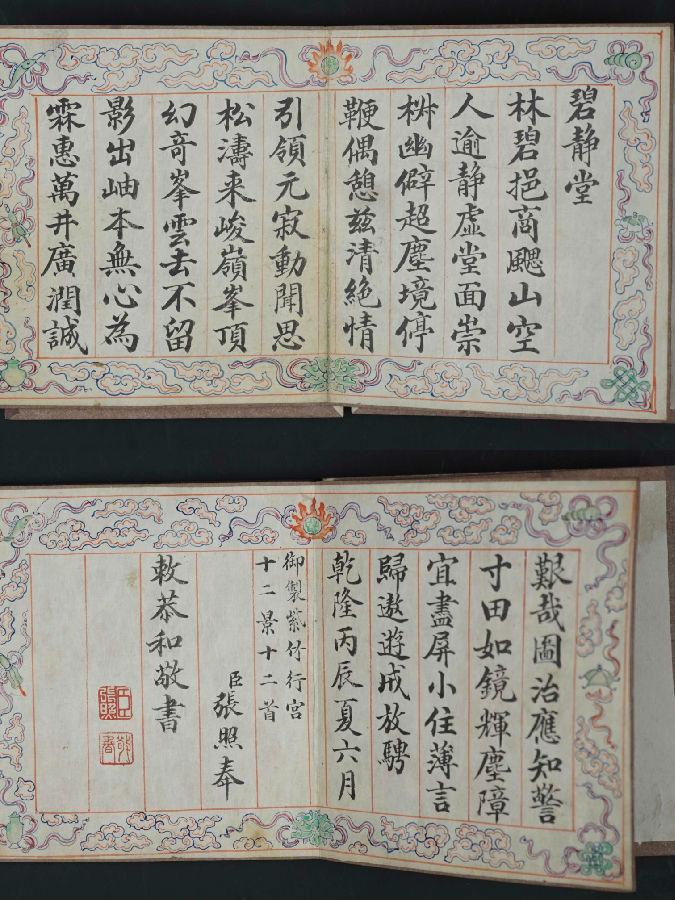 碧静堂
林碧挹商飔山空
人逾静虚堂面崇
椒幽僻超塵境停
鞭偶憩兹清絶情
引領元寂動聞思
松濤来峻嶺峯頂
幻竒峯雲去不留
影出岫本無心為
霖惠萬井廣潤誠
艱哉圖治應知警
寸田如鏡輝塵障
宜盡屏小住薄言
歸遨遊戒放騁
乾隆丙辰夏六月
御製紫竹行宮
十二景十二首
臣張照奉
敕恭和敬書
臣張照
敬書